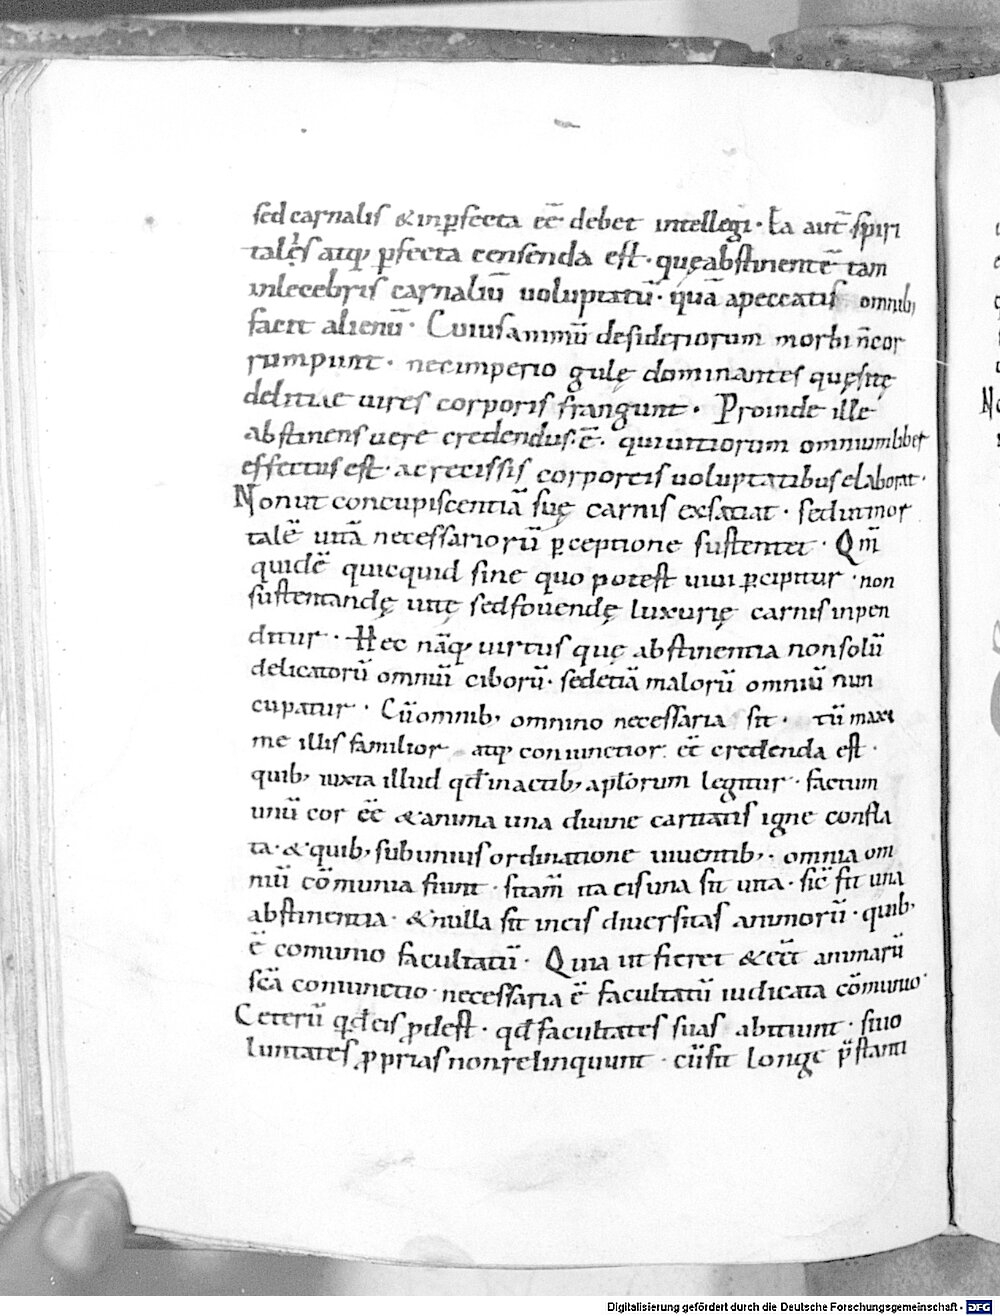 sed carnalis & inp̄fecta eē debet intellegi· Ea aut̄ spiri
tales atq; ꝑfecta censenda est· quę abstinentē tam
inlecebris carnaliū uoluptatū· quā apeccatis omnib;
facit alienū· Cuius animū desideriorum morbi ñ cor
rumpunt· nec imperio gulę dominantes quęsitę
delitiae uires corporis frangunt· Proinde ille
abstinens uere credendus·ē· qui uitiorum omnium liber
effectus est· ac recissis corporeis uoluptatibus elaborat·
Non ut concupiscentiā suę carnis exsatiat· sed ut mor
talē uitā necessariorū ꝑceptione sustentet· Qm̄
quidē quicquid sine quo potest uiui ꝑcipitur· non
sustentandę uitę sed fouendę luxurię carnis inpen
ditur· Hec nāq; uirtus quę abstinentia non solū
delicatorū omniū ciborū· sed etiā malorū omniū nun
cupatur· Cū omnib; omnino necessaria sit· tū maxi
me illis familior atq; coniunctior eē credenda est·
quib; iuxta illud qđ in actib; aplōrum legitur· factum
unū cor eē & anima una diuine caritatis igne confla
ta· & quib; sub unius ordinatione uiuentib;· omnia om
niū cōmunia fiunt· sit am̄ ita eis una sit uita· sic̄ sit una
abstinentia· & nulla sit in eis diuersitas animorū· quib;
ē comunio facultatū· Quia ut fieret & eēt animarū
scā coniunctio· necessaria ē facultatū iudicata cōmunio·
Ceterū qđ eis ꝓdest· qđ facultates suas abitiunt· si uo
luntates ꝓprias non relinquunt· cū sit longe p̄stanti